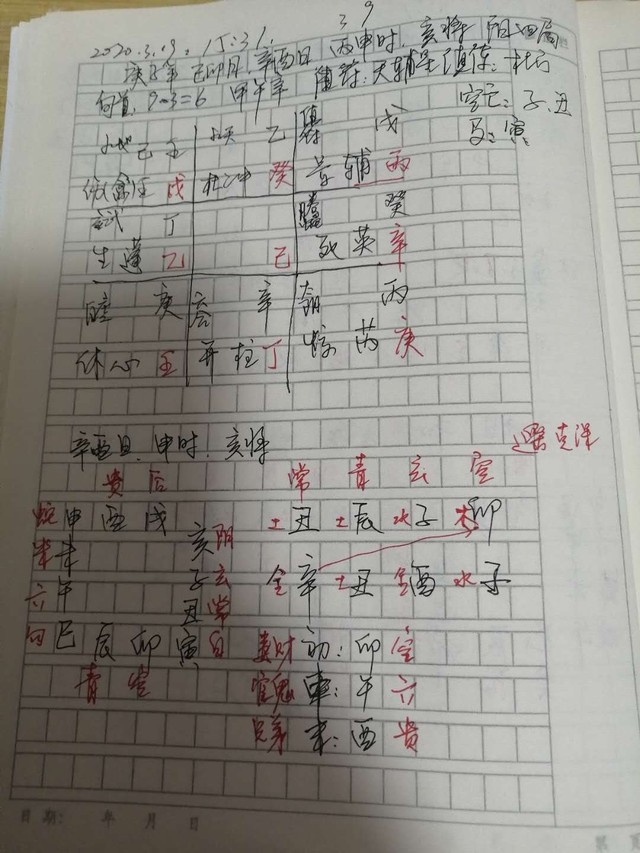 3 9
2020.3.19. 15:31.
庚子年 己卯月 辛酉日 丙申时. 亥将 阳四局
旬首: 9-3=6 甲午辛 值符: 天辅星 值使: 杜门
空亡: 子、丑
马: 寅
地 己 壬 天 乙 戊
伤 任 戊 杜 冲 癸 景 辅 丙
丁 癸
生 蓬 乙 己 死 英 辛
庚 合 辛 阴 丙
休 心 壬 开 柱 丁 惊 芮 庚
辛酉日. 申时. 亥将
遥克课
贵 后 常 青 玄 空
蛇 申 酉 戌 土丑 土辰 水子 木卯
朱 未 亥 阴
六 午 子 玄 金辛 土丑 金酉 水子
勾 巳 辰 卯 寅 丑 常 白
青 空
妻财 初: 卯 空
官鬼 中: 午 六
兄弟 末: 酉 贵
日期: 年 月 日
第 页